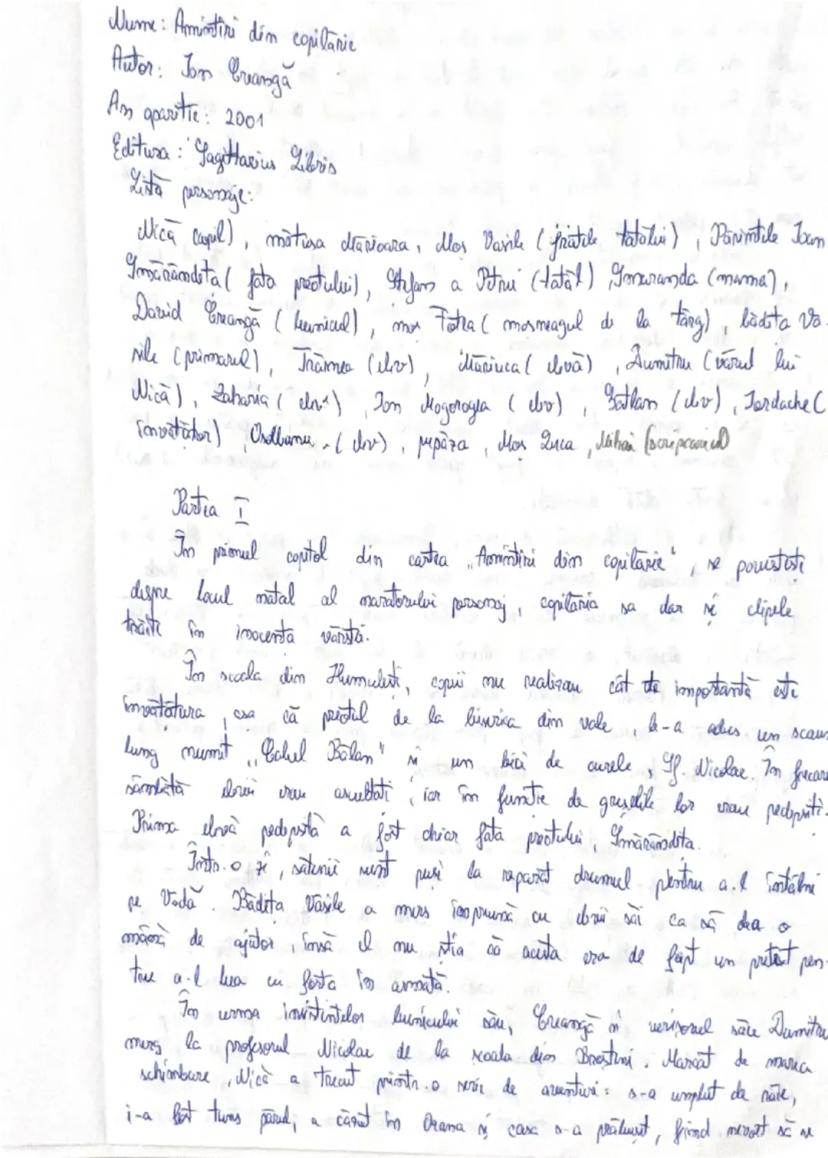 Nume: Amintiri din copilărie
Autor: Ion Creangă
An apariție: 2001
Editura: Sagittarius Libris
Listă personaje:
Nică copil), mătușa Mărioara, Moș Vasile (fratele tatălui), Părintele Ioan
Smărăndița (fata preotului), Ștefan a Petrii (tatăl) Smaranda (mama),
David Creangă (bunicul), moș Fotea (mosneagul de la târg), bădița Va-
sile (primarul), Trăsnea (elev), Măriuca (elevă), Dumitru (vărul lui
Nică), Zaharia (elev), Ion Mogorogea (elev), Gatlan (elev), Iordache (
învățător), Oșlobanu (elev), pupăza, Moș Luca, Mihai (scripcarul)
Partea I
În primul capitol din cartea „Amintiri din copilărie", se povestește
despre locul natal al naratorului personaj, copilăria sa dar și clipele
trăite în inocenta vârstă.
În școala din Humulești, copiii nu realizau cât de importantă este
învățătura, așa că preotul de la biserica din vale, le-a adus un scaun
lung numit „Calul Bălan" și un bici de curele, Sf. Nicolae. În fiecare
sâmbătă elevii erau ascultați, iar în funcție de greșelile lor erau pedepsiți.
Prima elevă pedepsită a fost chiar fata preotului, Smărăndița.
Într-o zi, sătenii sunt puși la reparat drumul pentru a-l întâlni
pe Vodă. Bădița Vasile a mers împreună cu elevii săi ca să dea o
mână de ajutor, însă el nu știa că acesta era de fapt un pretext pen-
tru a-l lua cu forța în armată.
În urma insistentelor bunicului său, Creangă și verișorul său Dumitru
merg la profesorul Nicolae de la școala din Broșteni. Marcat de marea
schimbare, Nică a trecut printr-o serie de aventuri: s-a umplut de râie,
i-a fost tuns părul, a căzut în Ozana și casa s-a prăbușit, fiind nevoit să se